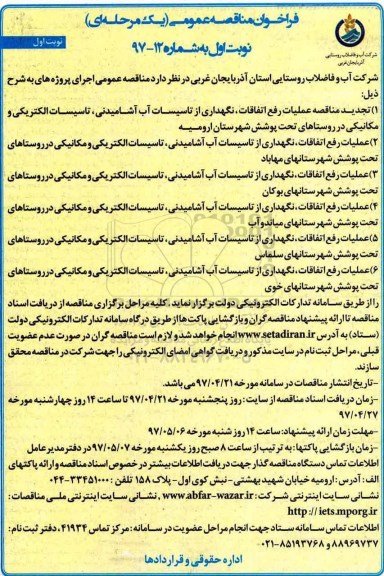 فراخوان مناقصه عمومی (یک مرحله‌ای)
نوبت اول
نوبت اول به شماره ۱۲-۹۷
شرکت آب و فاضلاب روستایی
آذربایجان غربی
شرکت آب و فاضلاب روستایی استان آذربایجان غربی در نظر دارد مناقصه عمومی اجرای پروژه های به شرح
ذیل:
۱) تجدید مناقصه عملیات رفع اتفاقات ، نگهداری از تاسیسات آب آشامیدنی ، تاسیسات الکتریکی و
مکانیکی در روستاهای تحت پوشش شهرستان ارومیه
۲) عملیات رفع اتفاقات ، نگهداری از تاسیسات آب آشامیدنی ، تاسیسات الکتریکی و مکانیکی در روستاهای
تحت پوشش شهرستانهای مهاباد
۳) عملیات رفع اتفاقات ، نگهداری از تاسیسات آب آشامیدنی ، تاسیسات الکتریکی و مکانیکی در روستاهای
تحت پوشش شهرستانهای بوکان
۴) عملیات رفع اتفاقات ، نگهداری از تاسیسات آب آشامیدنی ، تاسیسات الکتریکی و مکانیکی در روستاهای
تحت پوشش شهرستانهای میاندوآب
۵) عملیات رفع اتفاقات ، نگهداری از تاسیسات آب آشامیدنی ، تاسیسات الکتریکی و مکانیکی در روستاهای
تحت پوشش شهرستانهای سلماس
۶) عملیات رفع اتفاقات ، نگهداری از تاسیسات آب آشامیدنی ، تاسیسات الکتریکی و مکانیکی در روستاهای
تحت پوشش شهرستانهای خوی
را از طریق سامانه تدارکات الکترونیکی دولت برگزار نماید . کلیه مراحل برگزاری مناقصه از دریافت اسناد
مناقصه تا ارائه پیشنهاد مناقصه گران و بازگشایی پاکت ها از طریق درگاه سامانه تدارکات الکترونیکی دولت
(ستاد) به آدرس www.setadiran.ir انجام خواهد شد و لازم است مناقصه گران در صورت عدم عضویت
قبلی ، مراحل ثبت نام در سایت مذکور و دریافت گواهی امضای الکترونیکی را جهت شرکت در مناقصه محقق
سازند.
-تاریخ انتشار مناقصات در سامانه مورخه ۹۷/۰۴/۲۱ می باشد.
-زمان دریافت اسناد مناقصه از سایت : روز پنجشنبه مورخه ۹۷/۰۴/۲۱ تا ساعت ۱۴ روز چهارشنبه مورخه
۹۷/۰۴/۲۷
-مهلت زمان ارائه پیشنهاد: ساعت ۱۴ روز شنبه مورخه ۹۷/۰۵/۰۶
-زمان بازگشایی پاکتها: به ترتیب از ساعت ۸ صبح روز یکشنبه مورخه ۹۷/۰۵/۰۷ در دفتر مدیر عامل
اطلاعات تماس دستگاه مناقصه گذار جهت دریافت اطلاعات بیشتر در خصوص اسناد مناقصه و ارائه پاکتهای
الف : آدرس : ارومیه خیابان شهید بهشتی - نبش کوی اول - پلاک ۱۵۸ تلفن : ۳۳۴۵۱۰۰۰-۰۴۴
نشانی سایت اینترنتی شرکت : www.abfar-wazar.ir ، نشانی سایت اینترنتی ملی مناقصات :
http://iets.mporg.ir
اطلاعات تماس سامانه ستاد جهت انجام مراحل عضویت در سامانه : مرکز تماس ۴۱۹۳۴ ، دفتر ثبت نام :
۸۸۹۶۹۷۳۷ و ۸۵۱۹۳۷۶۸-۰۲۱
اداره حقوقی و قراردادها